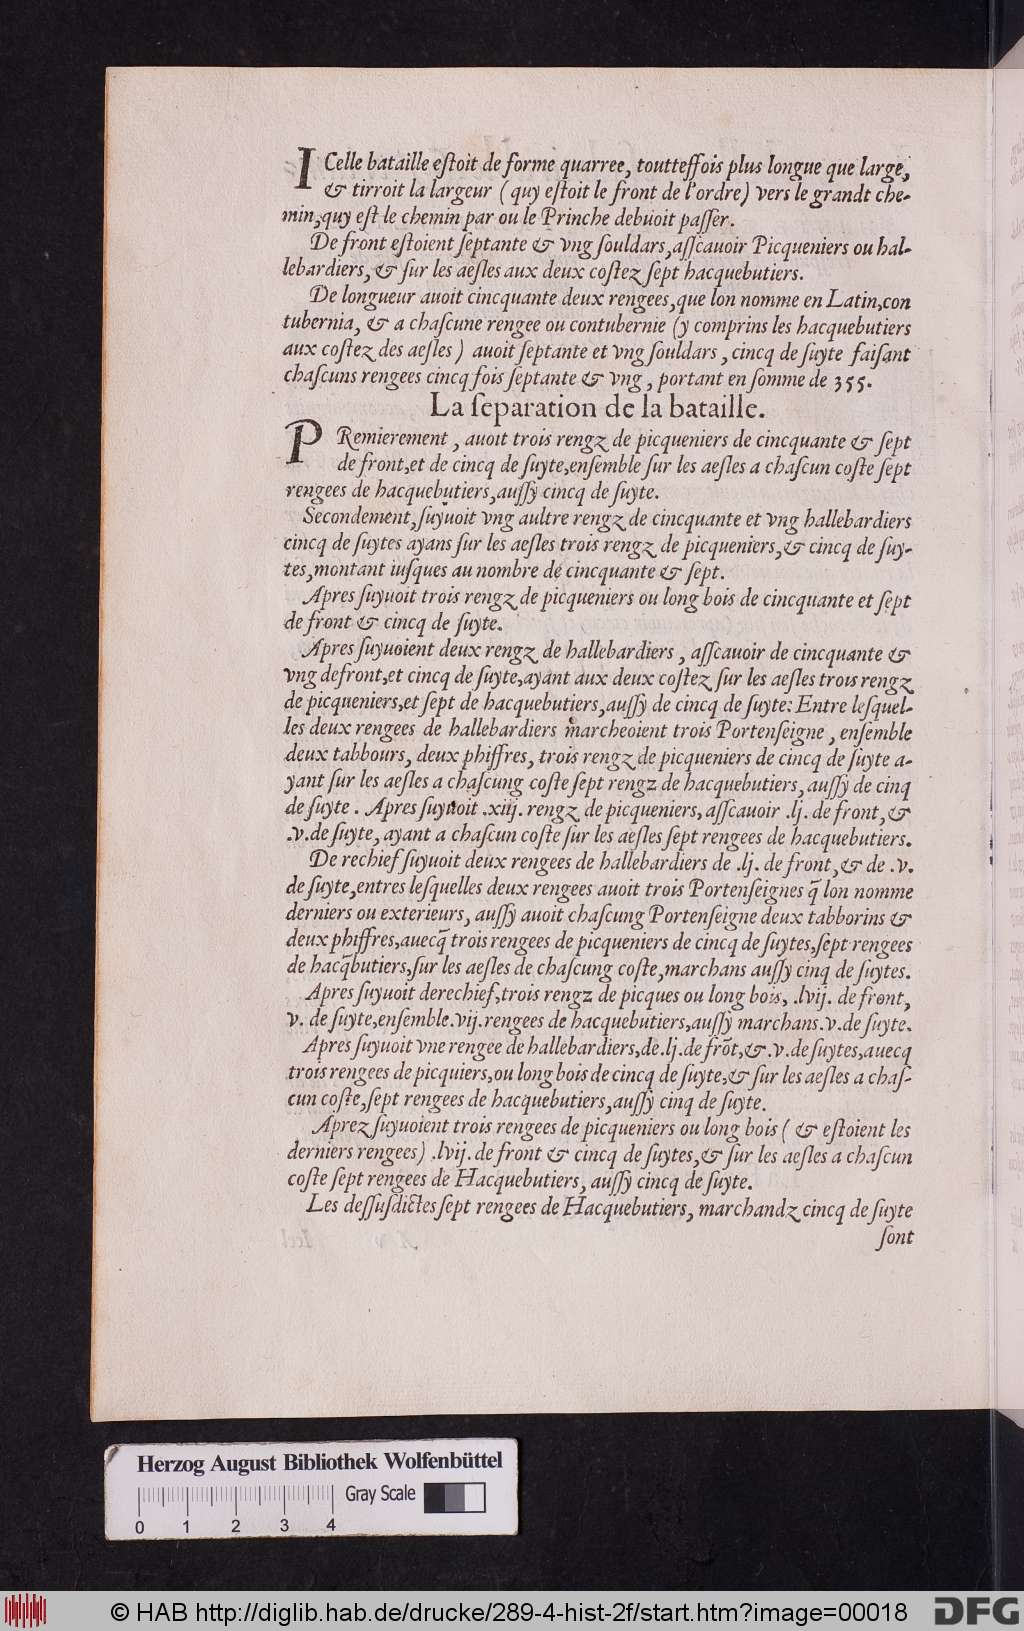 ICelle bataille eſtoit de forme quarree, toutteſfois plus longue que large,
& tirroit la largeur ( quy eſtoit le front de l'ordre) vers le grandt che-
min, quy eſt le chemin par ou le Princhе debuoit paſſer.
De front eſtoient ſeptante & vng ſouldars, aſſcauoir Picqueniers ou hal-
lebardiers, & ſur les aeſles aux deux coſtez ſept hacquebutiers.
De longueur auoit cincquante deux rengees, que lon nomme en Latin, con
tubernia, & a chaſcune rengee ou contubernie (y comprins les hacquebutiers
aux coſtez des aeſles ) auoit ſeptante et vng ſouldars , cincq de ſuyte faiſant
chaſcuns rengees cincq fois ſeptante & vng , portant en ſomme de 355.
La ſeparation de la bataille.
PRemierement , auoit trois rengz de picqueniers de cincquante & ſept
de front, et de cincq de ſuyte, enſemble ſur les aeſles a chaſcun coſte ſept
rengees de hacquebutiers, auſſy cincq de ſuyte.
Secondement, ſuyuoit vng aultre rengz de cincquante et vng hallebardiers
cincq de ſuytes ayans ſur les aeſles trois rengz de picqueniers, & cincq de ſuy-
tes, montant iuſques au nombre de cincquante & ſept.
Apres ſuyuoit trois rengz de picqueniers ou long bois de cincquante et ſept
de front & cincq de ſuyte.
Apres ſuyuoient deux rengz de hallebardiers , aſſcauoir de cincquante &
vng defront, et cincq de ſuyte, ayant aux deux coſtez ſur les aeſles trois rengz
de picqueniers, et ſept de hacquebutiers, auſſy de cincq de ſuyte: Entre leſquel-
les deux rengees de hallebardiers marcheoient trois Portenſeigne , enſemble
deux tabbours, deux phiffres, trois rengz de picqueniers de cincq de ſuyte a-
yant ſur les aeſles a chaſcung coſte ſept rengz de hacquebutiers, auſſy de cinq
de ſuyte . Apres ſuyuoit .xiij. rengz de picqueniers, aſſcauoir .lj. de front, &
.v. de ſuyte, ayant a chaſcun coſte ſur les aeſles ſept rengees de hacquebutiers.
De rechief ſuyuoit deux rengees de hallebardiers de .lj. de front, & de .v.
de ſuyte, entres leſquelles deux rengees auoit trois Portenſeignes q̃ lon nomme
derniers ou exterieurs, auſſy auoit chaſcung Portenſeigne deux tabborins &
deux phiffres, auecq̃ trois rengees de picqueniers de cincq de ſuytes, ſept rengees
de hacq̃butiers, ſur les aeſles de chaſcung coſte, marchans auſſy cinq de ſuytes.
Apres ſuyuoit derechief, trois rengz de picques ou long bois, .lvij. de front,
v. de ſuyte, enſemble .vij. rengees de hacquebutiers, auſſy marchans .v. de ſuyte.
Apres ſuyuoit vne rengee de hallebardiers, de .lj. de frõt, & .v. de ſuytes, auecq
trois rengees de picquiers, ou long bois de cincq de ſuyte, & ſur les aeſles a chaſ-
cun coſte, ſept rengees de hacquebutiers, auſſy cinq de ſuyte.
Aprez ſuyuoient trois rengees de picqueniers ou long bois ( & eſtoient les
derniers rengees) .lvij. de front & cincq de ſuytes, & ſur les aeſles a chaſcun
coſte ſept rengees de Hacquebutiers, auſſy cincq de ſuyte.
Les deſſuſdictes ſept rengees de Hacquebutiers, marchandz cincq de ſuyte
ſont
Herzog August Bibliothek Wolfenbüttel
Gray Scale
0 1 2 3 4
© HAB http://diglib.hab.de/drucke/289-4-hist-2f/start.htm?image=00018
DFG